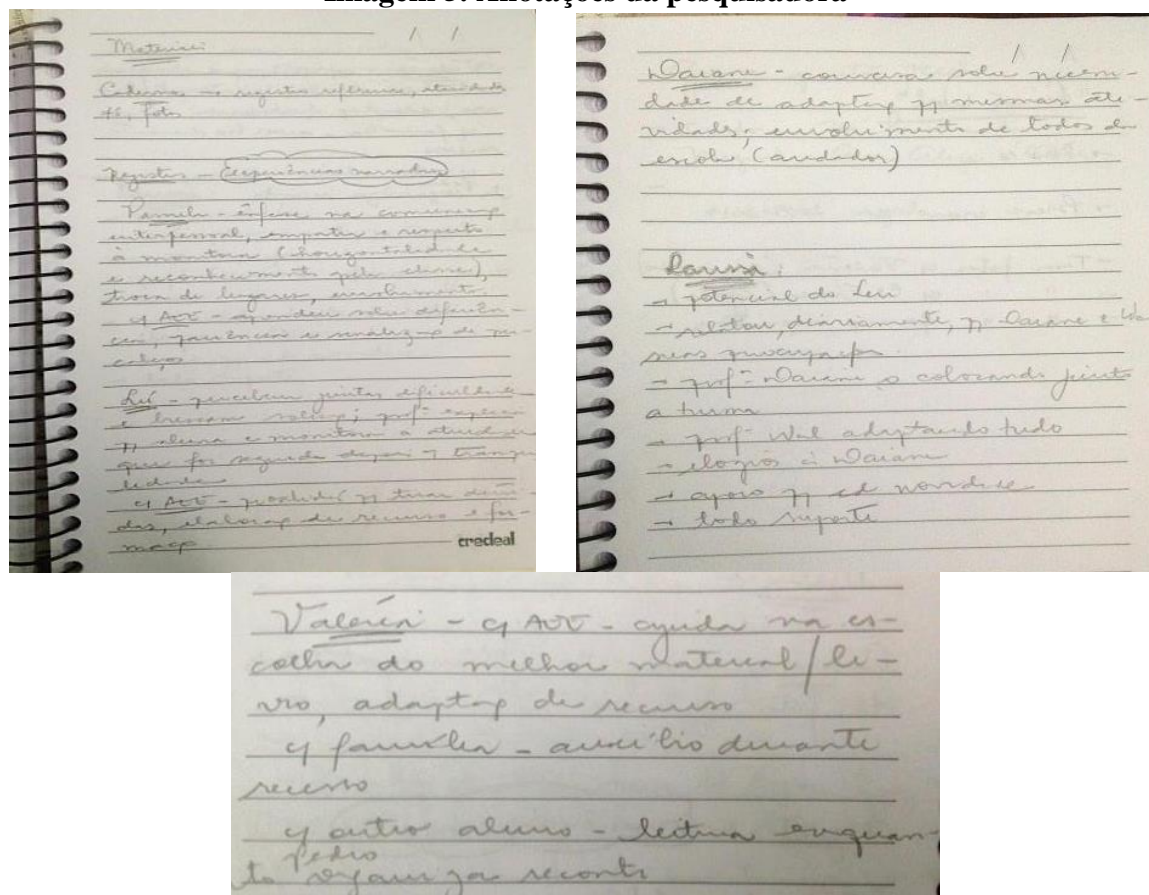 Imagem 3: Anotações da pesquisadora
/ /
Materiais:
Caderno → registros reflexivos, atividades
fotos
Registros - (experiências narradas)
Pamela - ênfase na comunicação
interpessoal, empatia e respeito
à monitora (horizontalidade
e reconhecimento pela classe),
troca de lugares, envolvimento
c/ AEE - aprendeu sobre diferen-
ças, e sinalização de
Lú - perceberam juntas dificuldade
e buscaram soluç; profª explica
p/ aluna e monitora a atividade
que foi seguida depois c/ tranqui
lidade
c/ AEE - p/ tirar dúvi-
das, elaboraç de recurso e for-
maçp
credeal
/ /
Daiane - conversa sobre necessi-
dade de adaptaç p/ mesmas ati-
vidades; envolvimento de todos da
escola (andador)
Larissa:
→ potencial do Leu
→ relatou, diariamente, p/ Daiane e Wal
suas preocupaçs
→ profª Daiane o colocando junto
a turma
→ profª Wal adaptando tudo
→ elogios à Daiane
→ apoio p/
→ todo suporte
Valéria - c/ AEE - ajuda na es-
colha do melhor material/li-
vro, adaptaç de recurso
c/ família - auxílio durante
recurso
c/ outro aluno - leitura enquan-
Pedro
to organiza reconto